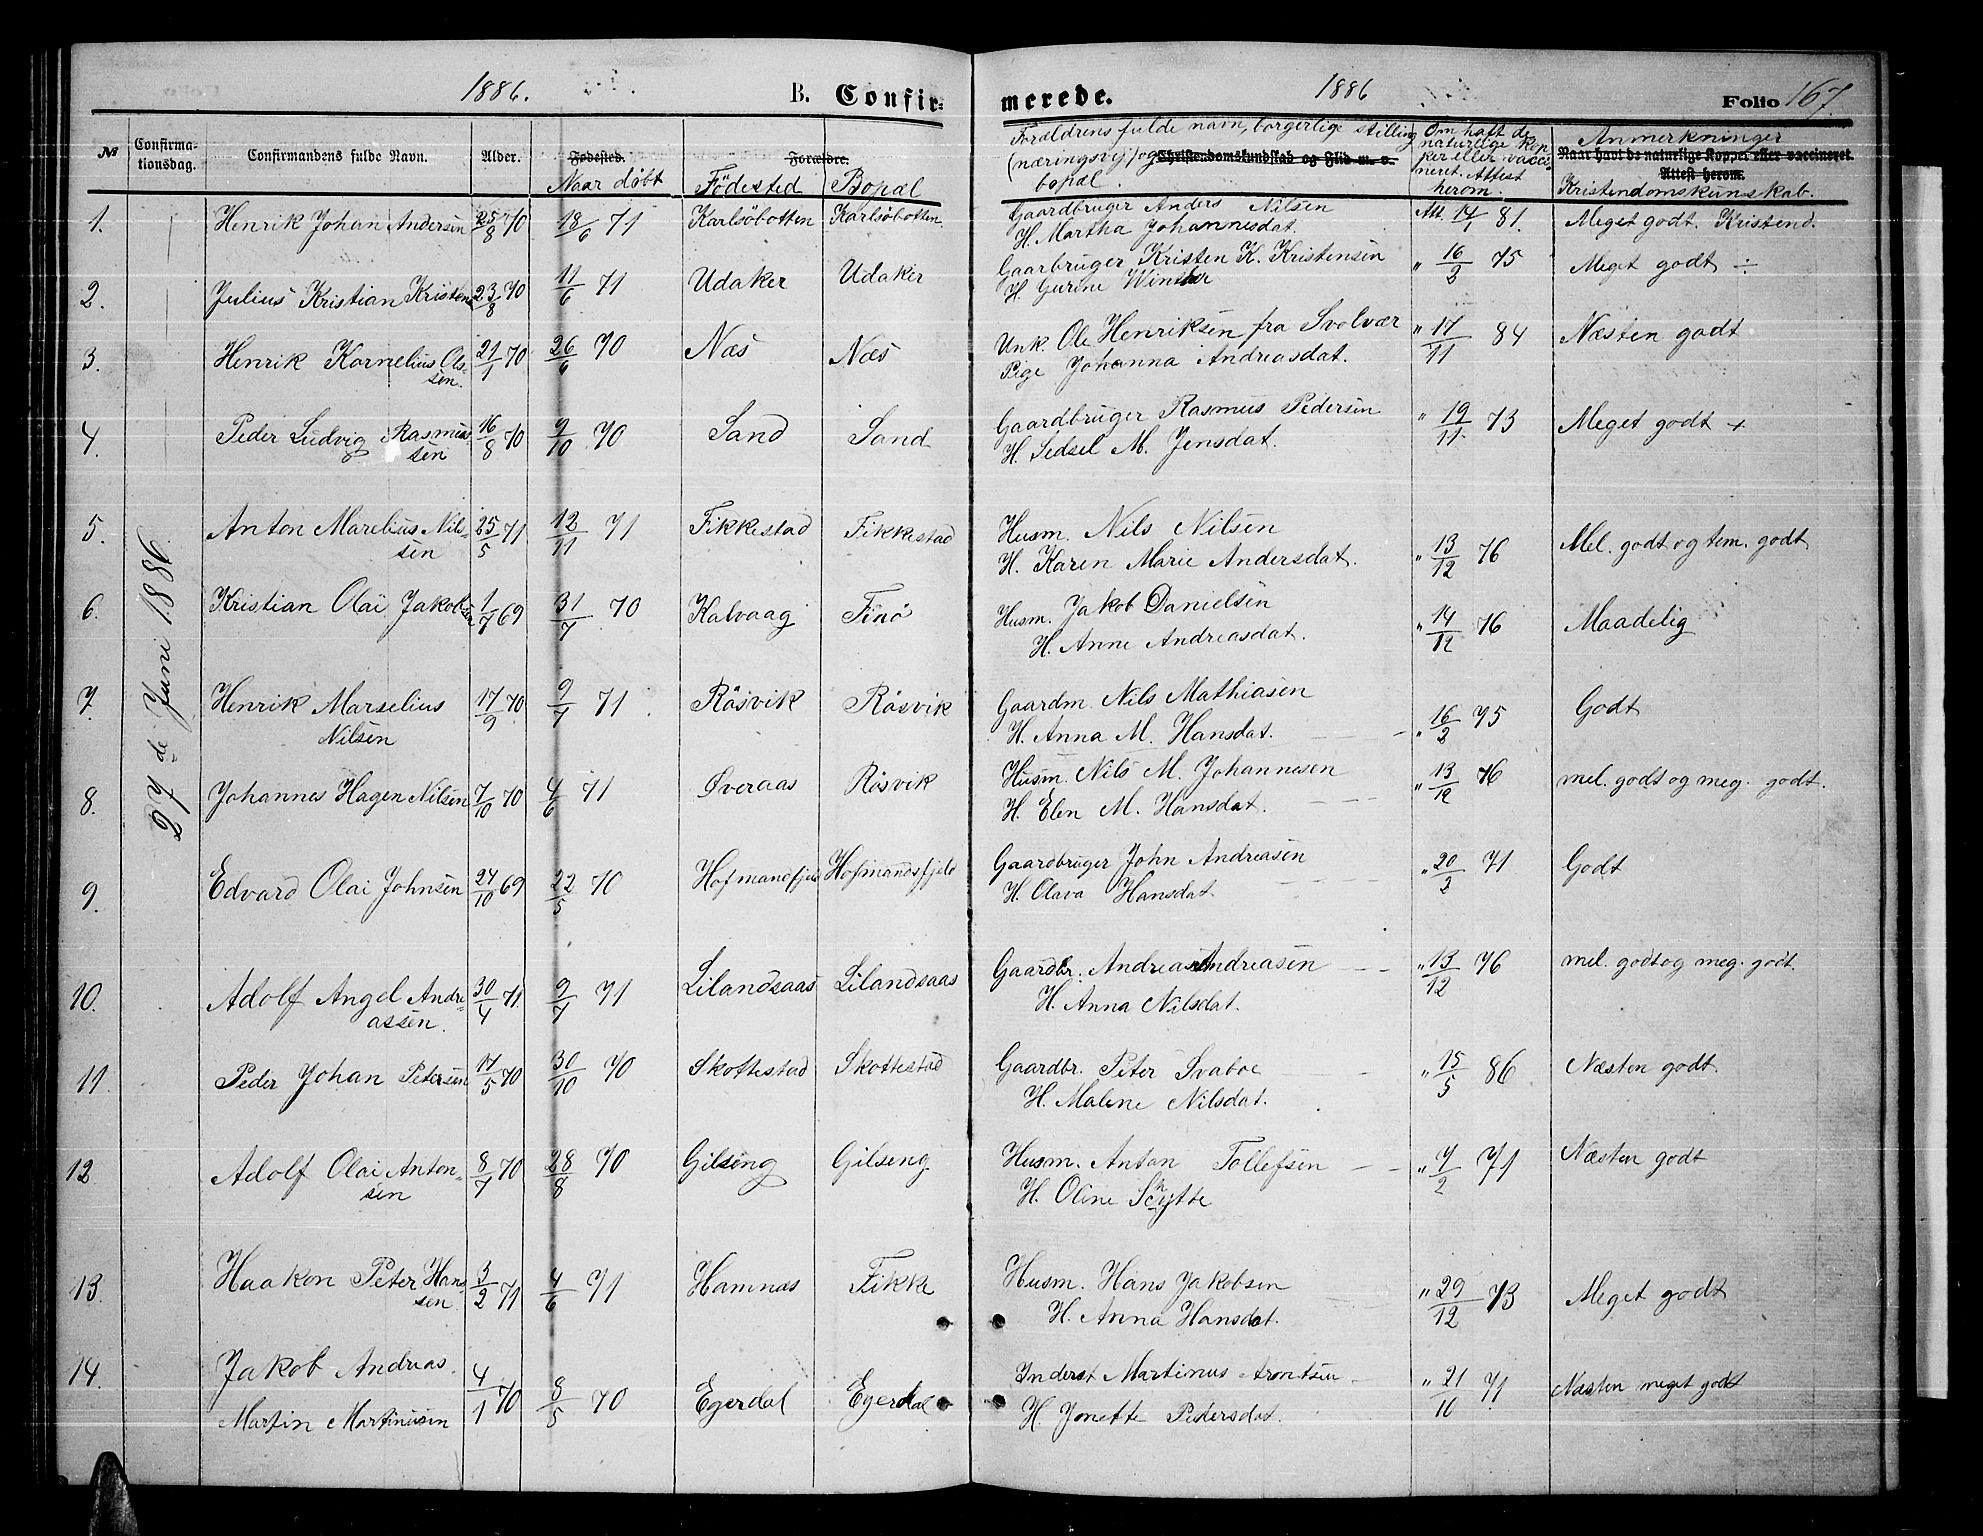 1886. B. Confir- merede. 1886 Folio 167
№ Confirma-tionsdag. Confirmandens fulde Navn. Alder. Fødested. Forældre.
Naar döbt Födested Bopæl
Forældrens fulde navn, borgerlige stilling
(næringsvej) og Christendomskundskab og Flid m. v.
bopæl.
Om haft de
naturlige kop
per eller vacci
neret. Attest
herom.
Anmerkninger
Naar havt de naturlige Kopper eller vaccineret.
Attest herom.
Kristendomskunskab.
27de Juni 1886
1. Henrik Johan Andersen 25/8 70 18/6 71 Karlsöbotten Karlsöbotten Gaardbruger Anders Nilsen Att. 14/1 81. Meget godt. Kristend.
H. Martha Johannesdat.
2. Julius Kristian Kristens 23/8 70 11/6 71 Udaker Udaker Gaarbruger Kristen K. Kristensen " 16/2 75 Meget godt ÷
H. Gurine Winther
3. Henrik Kornelius Ols- 21/1 70 26/6 70 Næs Næs Unk. Ole Henriksen fra Svolvær " 17/11 84 Næsten godt
sen. Pige Johanna Andreasdat.
4. Peder Ludvig Rasmus 16/8 70 9/10 70 Sand Sand Gaardbruger Rasmus Pedersen " 19/11 73 Meget godt +
sen H. Sedsel M. Jensdat.
5. Anton Marelius Nils- 25/5 71 12/11 71 Fikkestad Fikkestad Husm. Nils Nilsen " 13/12 76 Mel. godt og tem. godt
sen H. Karen Marie Andersdat.
6. Kristian Olai Jakobsen 1/7 69 31/7 70 Kalvaag Finö Husm. Jakob Danielsen " 14/12 76 Maadelig
H. Anne Andreasdat.
7. Henrik Marselius 17/9 70 9/7 71 Rösvik Rösvik Gaardm. Nils Mathiasen " 16/2 75 Godt
Nilsen H. Anna M. Hansdat.
8. Johannes Hagen Nilsen 7/10 70 4/6 71 Øveraas Rösvik Husm. Nils M. Johannesen " 13/12 76 mel. godt og meg. godt.
H. Elen M. Hansdat.
9. Edvard Olai Johnsen 24/10 69 22/5 70 Hofmandfjeld Hofmandsfjeld Gaardbruger John Andreasen " 20/2 71 Godt
H. Olava Hansdat.
10. Adolf Angel Andre- 30/4 71 9/7 71 Lilandsaas Lilandsaas Gaardbr. Andreas Andreasen " 13/12 76 mel. godt og meg. godt.
assen. H. Anna Nilsdat.
11. Peder Johan Petersen 17/5 70 30/10 70 Skottestad Skottestad Gaardbr. Peter Svaboe " 15/5 86 Næsten godt.
H. Malene Nilsdat.
12 Adolf Olai Anton- 8/7 70 28/8 70 Gilseng Gilseng. Husm. Anton Tollefsen " 7/2 71 Næsten godt
sen H. Oline Schytte
13. Haakon Peter Hans 3/2 71 4/6 71 Hamnæs Fikke Husm. Hans Jakobsen " 29/12 73 Meget godt
sen H. Anna Hansdat.
14. Jakob Andreas 4/1 70 8/5 70 Egerdal Egerdal Inderst Martinus Arontsen " 21/10 71 Næsten meget godt
Martin Martinusen H. Jonette Pedersdat.